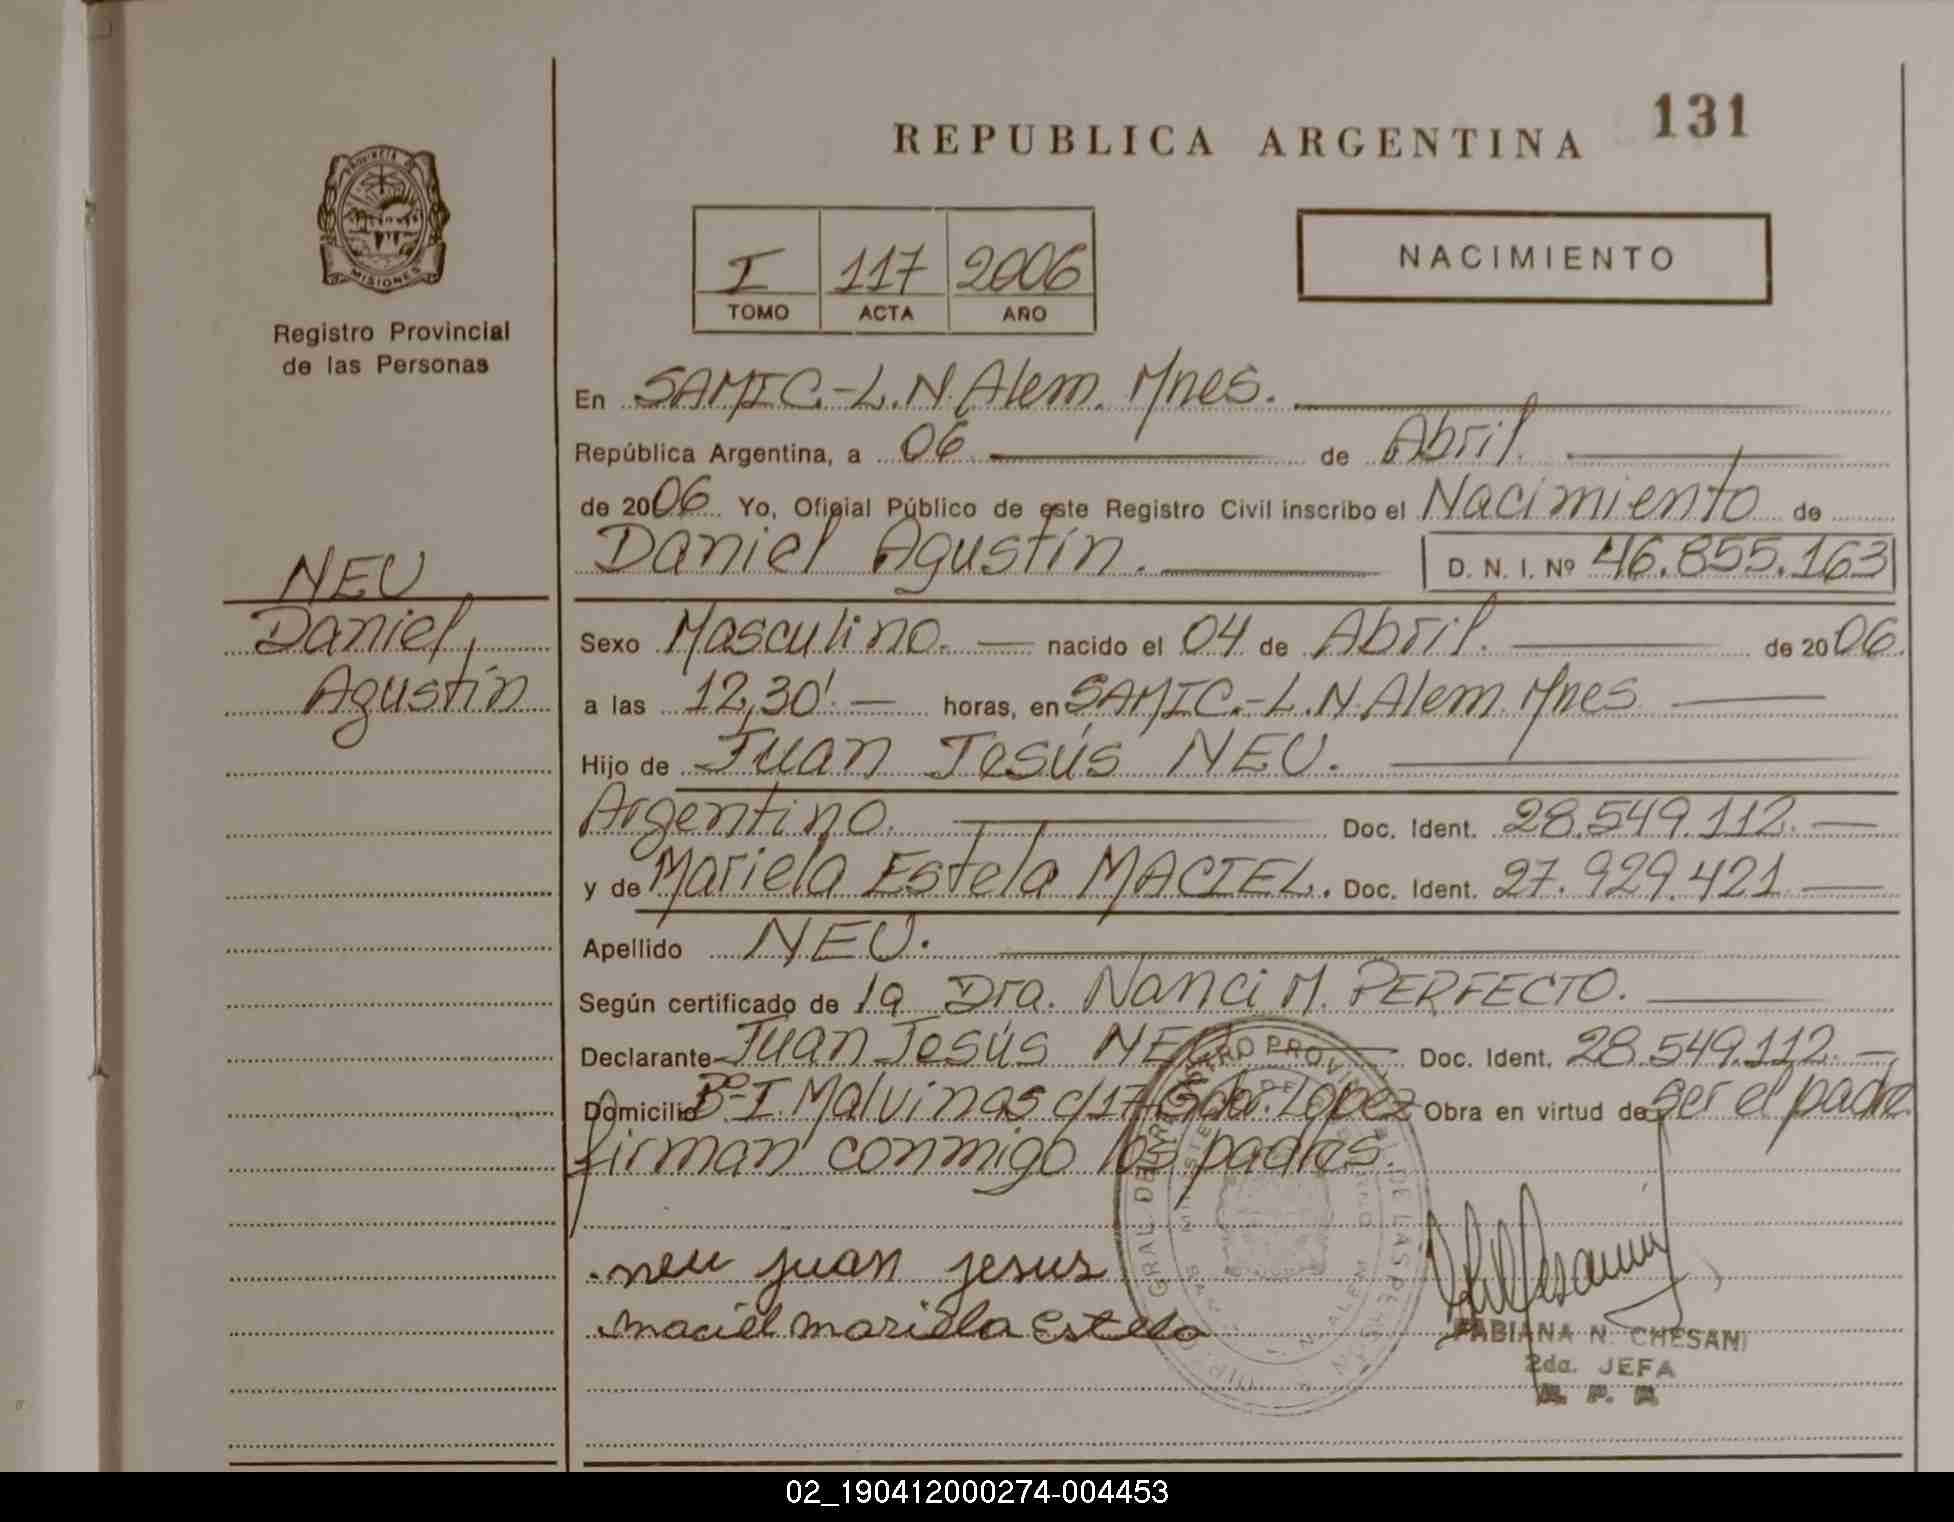 131
REPUBLICA ARGENTINA
PROVINCIA DE
MISIONES
Registro Provincial
de las Personas
I 117 2006
TOMO ACTA AÑO
NACIMIENTO
En SAMIC.-L.N.Alem. Mnes.
República Argentina, a 06 de Abril.
de 2006 Yo, Oficial Público de este Registro Civil inscribo el Nacimiento de
Daniel Agustín. D. N. I. Nº 46.855.163
NEU
Daniel,
Agustín
Sexo Masculino. nacido el 04 de Abril. de 2006.
a las 12,30'. horas, en SAMIC.-L.N.Alem. Mnes
Hijo de Juan Jesús NEU.
Argentino. Doc. Ident. 28.549.112.
y de Mariela Estela MACIEL. Doc. Ident. 27.929.421
Apellido NEU.
Según certificado de la Dra. Nanci M. PERFECTO.
Declarante Juan Jesús NEU Doc. Ident. 28.549.112.
Domicilio Bº I. Malvinas c/17 Gdor. López Obra en virtud de ser el padre
firman conmigo los padres.
neu juan jesus
maciel mariela Estela
FABIANA N. CHESANI
2da. JEFA
R. P. P.
02_190412000274-004453